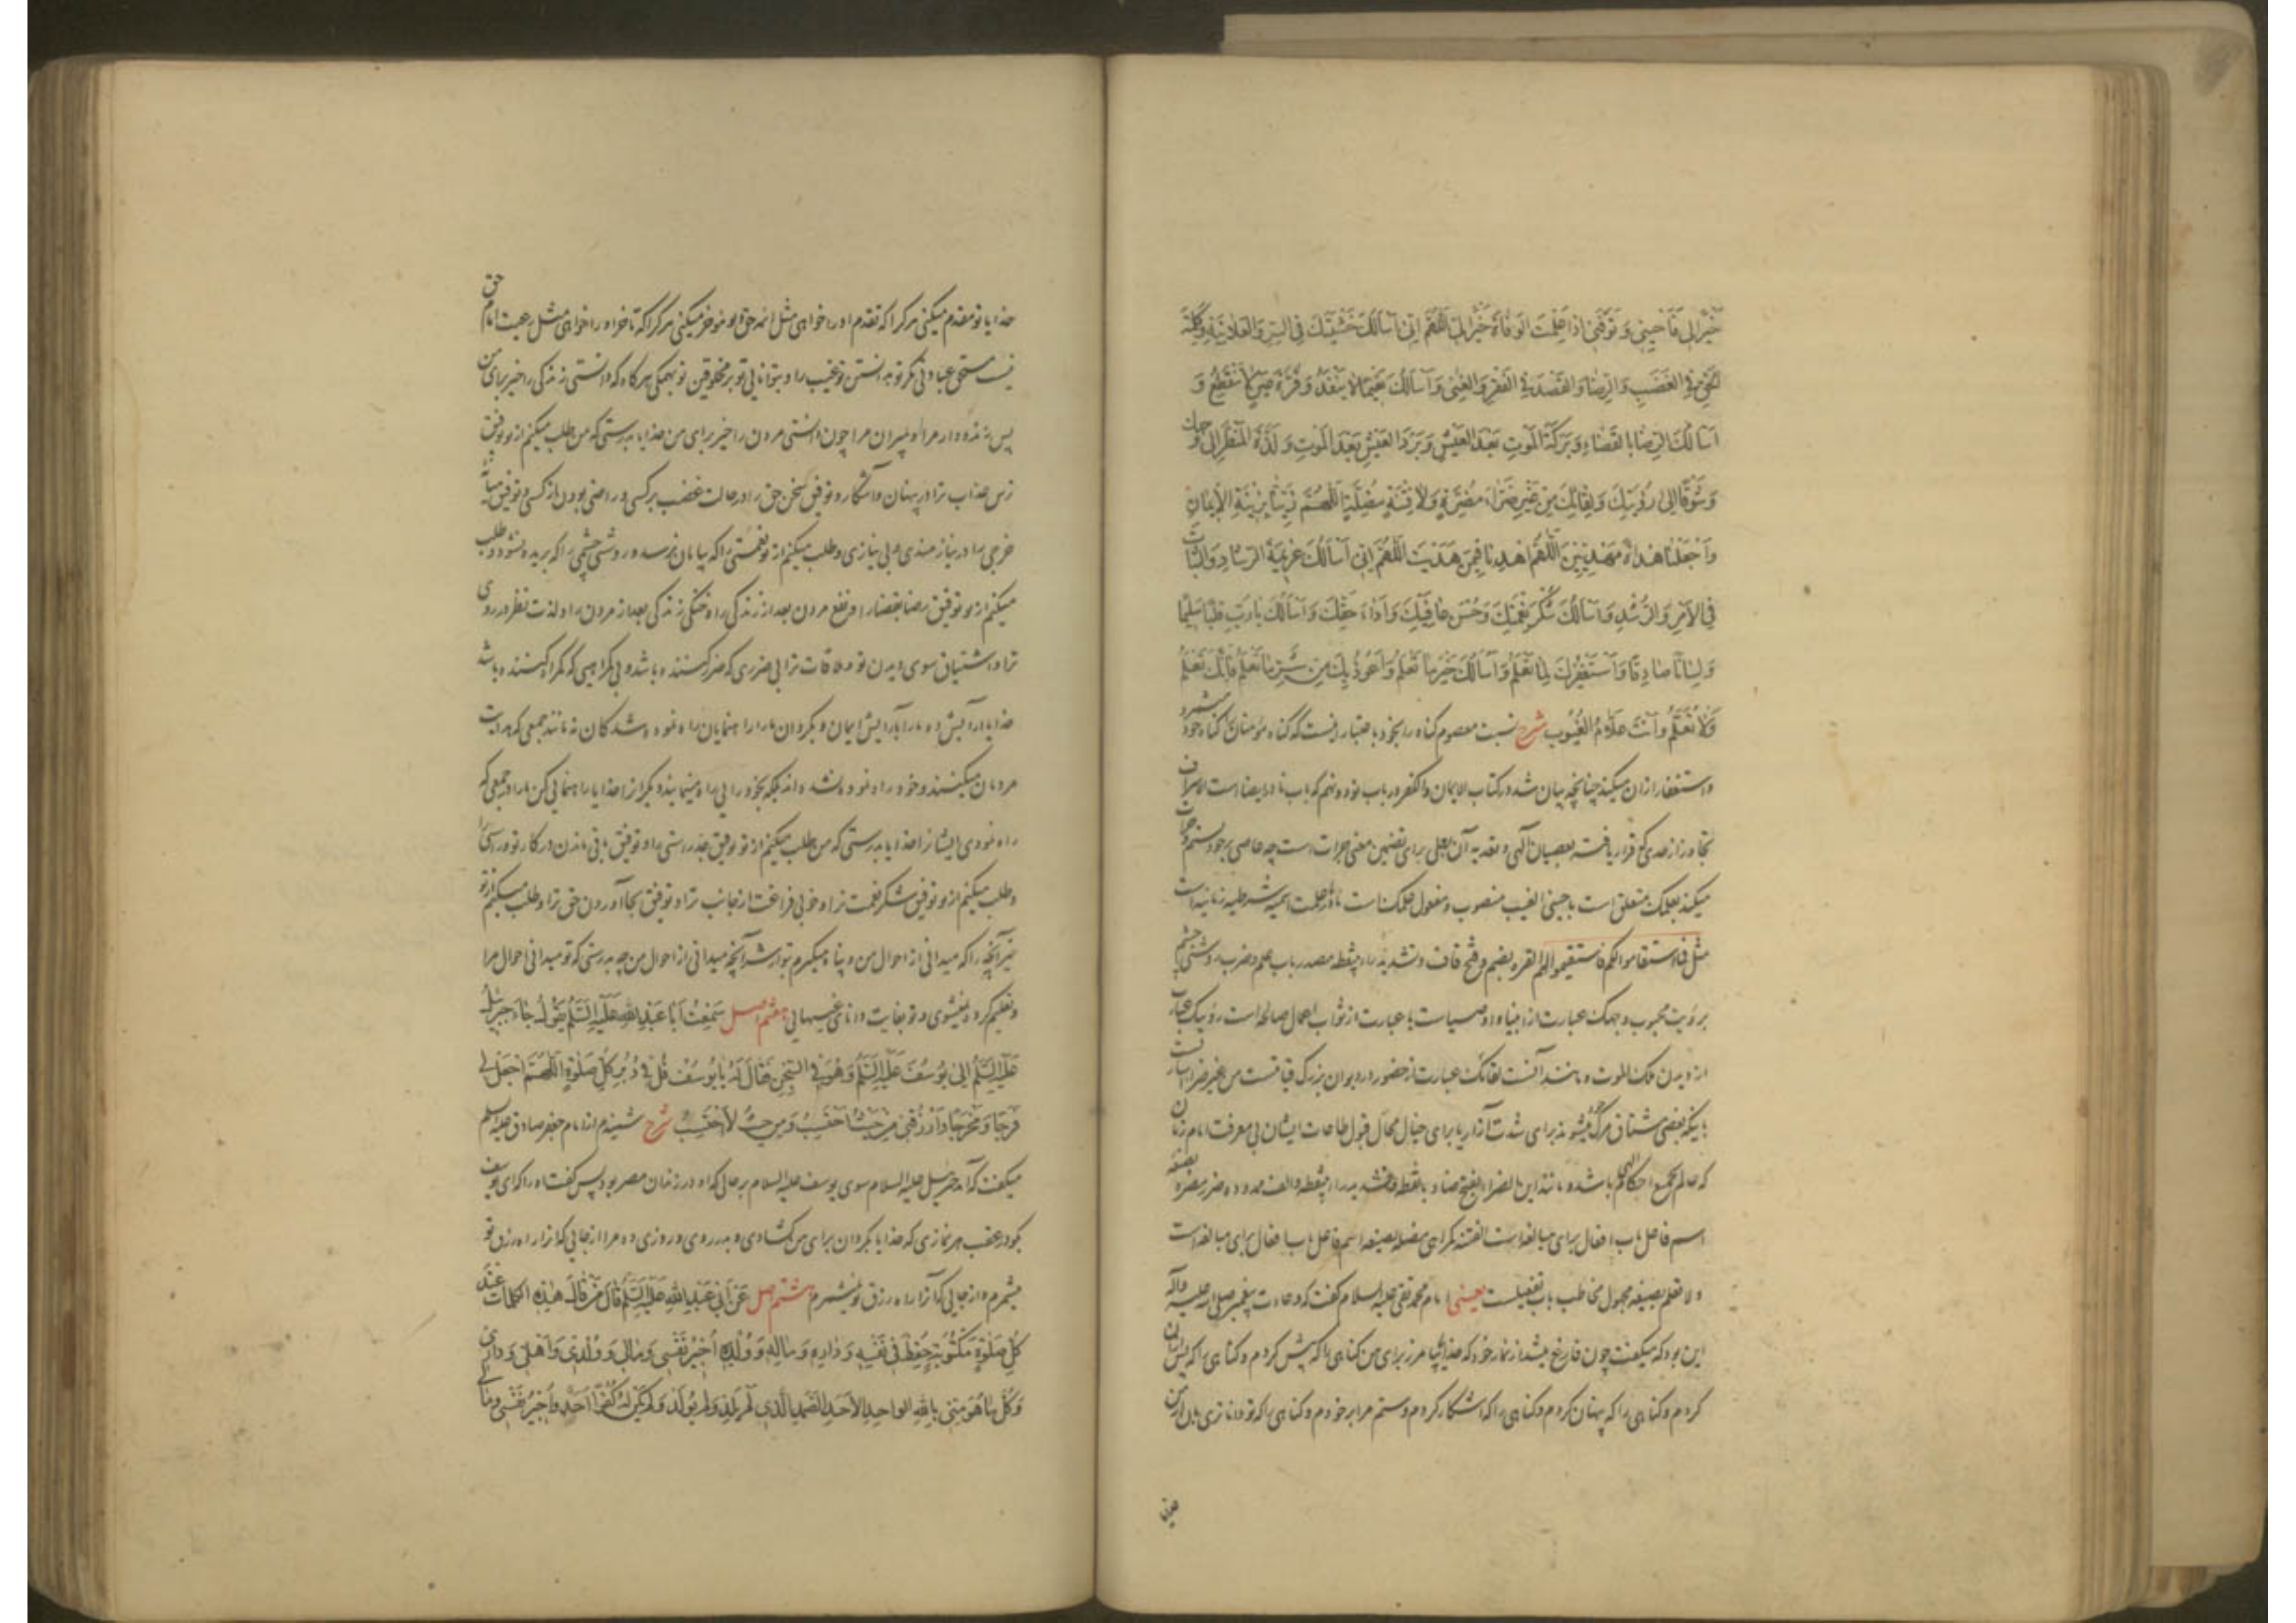 خَيْرًا لِي فَأَحْيِنِي وَتَوَفَّنِي إِذَا عَلِمْتَ الْوَفَاةَ خَيْرًا لِي اللَّهُمَّ إِنِّي أَسْأَلُكَ خَشْيَتَكَ فِي السِّرِّ وَالْعَلَانِيَةِ وَكَلِمَةَ
الْحَقِّ فِي الْغَضَبِ وَالرِّضَا وَالْقَصْدَ فِي الْفَقْرِ وَالْغِنَى وَأَسْأَلُكَ نَعِيمًا لَا يَنْفَدُ وَقُرَّةَ عَيْنٍ لَا تَنْقَطِعُ وَ
أَسْأَلُكَ الرِّضَا بِالْقَضَاءِ وَبَرَكَةَ الْمَوْتِ بَعْدَ الْعَيْشِ وَبَرْدَ الْعَيْشِ بَعْدَ الْمَوْتِ وَلَذَّةَ الْمَنْظَرِ إِلَى وَجْهِكَ
وَشَوْقًا إِلَى رُؤْيَتِكَ وَلِقَائِكَ مِنْ غَيْرِ ضَرَّاءَ مُضِرَّةٍ وَلَا فِتْنَةٍ مُضِلَّةٍ اللَّهُمَّ زَيِّنَّا بِزِينَةِ الْإِيمَانِ
وَاجْعَلْنَا هُدَاةً مَهْدِيِّينَ اللَّهُمَّ اهْدِنَا فِيمَنْ هَدَيْتَ اللَّهُمَّ إِنِّي أَسْأَلُكَ عَزِيمَةَ الرَّشَادِ وَالثَّبَاتَ
فِي الْأَمْرِ وَالرُّشْدِ وَأَسْأَلُكَ شُكْرَ نِعْمَتِكَ وَحُسْنَ عَافِيَتِكَ وَأَدَاءَ حَقِّكَ وَأَسْأَلُكَ يَا رَبِّ قَلْبًا سَلِيمًا
وَلِسَانًا صَادِقًا وَأَسْتَغْفِرُكَ لِمَا تَعْلَمُ وَأَسْأَلُكَ خَيْرَ مَا تَعْلَمُ وَأَعُوذُ بِكَ مِنْ شَرِّ مَا تَعْلَمُ فَإِنَّكَ تَعْلَمُ
وَلَا نَعْلَمُ وَأَنْتَ عَلَّامُ الْغُيُوبِ شرح نسبت معصوم گناه را بخود باعتبار اینست که گناه مؤمنان گناه خود میشمرد
و استغفار از ان میکند چنانچه بیان شد در کتاب الایمان والکفر در باب نود و نهم که باب نادر ایضا است الاسراف
تجاوز از حدی که قرار یافته بعصیان الهی و تعدیه آن بعلی برای تضمین معنی جرات است چه عاصی بر خود ستم و جرات
میکند بعلمک متعلق است باحینی الغیب منصوب و مفعول علمک است ما در ما علمت اسمیه شرطیه زمانیه است
مثل فما استقاموا لکم فاستقیموا لهم القره بضم و فتح قاف و تشدید راء بینقطه مصدر باب علم و ضرب روشنی چشم
برؤیت محبوب وجهک عبارت از انبیاء و اوصیاست یا عبارت از ثواب اعمال صالحه است رؤیتک عبارت
از دیدن ملک الموت و مانند آنست لقائک عبارت از حضور در دیوان بزرگ قیامتست من غیر ضراء اشارتست
باینکه بعضی مشتاق مرگ خود میشوند برای شدت آزار یا برای خیال محال قبول طاعات ایشان بی معرفت امام زمان
که عالم بجمیع احکام الهی باشد و مانند این الضراء بفتح ضاد با نقطه و تشدید راء بینقطه و الف ممدوده ضرر مضره بصیغه
اسم فاعل باب افعال برای مبالغه است الفتنه گمراهی مضله بصیغه اسم فاعل باب افعال برای مبالغه است
ولا تعلم بصیغه مجهول مخاطب باب تفعیلست یعنی امام محمد تقی علیه السلام گفت که دعادت پیغمبر صلی الله علیه وآله
این بود که میگفت چون فارغ میشد از نماز خود که خدایا بیامرز برای من گناهی را که پیش کردم و گناهی را که پس از آن
کردم و گناهی را که پنهان کردم و گناهی را که آشکار کردم و ستم مرا بر خودم و گناهی را که تو داناتری بآن از من
خدایا تو مقدم میکنی هر کرا که تقدم او را خواهی مثل ائمه حق و تو مؤخر میکنی هر کرا که تاخر او را خواهی مثل رعیت امام حق
نیست مستحق عبادتی مگر تو بدانستن تو غیب را و بتوانایی تو بر مخلوقین تو بهمگی هر گاه که دانستی زندگی را خیر برای من
پس زنده دار مرا و بمیران مرا چون دانستی مردن را خیر برای من خدایا بدرستی که من طلب میکنم از تو توفیق
ترس عذاب ترا در پنهان و آشکار و توفیق سخن حق را در حالت غضب بر کسی و راضی بودن از کسی و توفیق میانه
خرجی را در نیازمندی و بی نیازی و طلب میکنم از تو نعمتی را که بپایان نرسد و روشنی چشمی را که بریده نشود و طلب
میکنم از تو توفیق رضا بقضا را و نفع مردن بعد از زندگی را و خنکی زندگی بعد از مردن را و لذت نظر در روی
ترا و اشتیاق سوی دیدن تو و ملاقات ترا بی ضرری که ضرر کننده باشد و بی گمراهیی که گمراه کننده باشد
خدایا آرایش ده ما را بآرایش ایمان و بگردان ما را راهنمایان راه نموده شدگان نه مانند جمعی که هدایت
مردمان میکنند و خود راه نموده نشده اند بلکه بخودرایی راه مینمایند دیگران را خدایا راهنمایی کن ما را در جمعی که
راه نمودی ایشانرا خدایا بدرستی که من طلب میکنم از تو توفیق جد راستی را و توفیق باقی ماندن در کار تو و راستی را
و طلب میکنم از تو توفیق شکر نعمت ترا و خوبی فراغت از جانب ترا و توفیق بجا آوردن حق ترا و طلب میکنم از تو
خیر آنچه را که میدانی از احوال من و پناه میگیرم بتو از شر آنچه میدانی از احوال من چه بدرستی که تو میدانی احوال مرا
و تعلیم کرده نمیشوی و تو بغایت دانای غیبهایی هفتم اصل سَمِعْتُ أَبَا عَبْدِ اللَّهِ عَلَيْهِ السَّلَامُ يَقُولُ جَاءَ جِبْرَئِيلُ
عَلَيْهِ السَّلَامُ إِلَى يُوسُفَ عَلَيْهِ السَّلَامُ وَهُوَ فِي السِّجْنِ فَقَالَ لَهُ يَا يُوسُفُ قُلْ فِي دُبُرِ كُلِّ صَلَاةٍ اللَّهُمَّ اجْعَلْ لِي
فَرَجًا وَمَخْرَجًا وَارْزُقْنِي مِنْ حَيْثُ أَحْتَسِبُ وَمِنْ حَيْثُ لَا أَحْتَسِبُ شرح شنیدم از امام جعفر صادق علیه السلام
میگفت که آمد جبرئیل علیه السلام سوی یوسف علیه السلام بر حالی که او در زندان مصر بود پس گفت او را که ای یوسف
بگو در عقب هر نمازی که خدایا بگردان برای من گشادی و بدرروی و روزی ده مرا از جایی که آنرا راه رزق تو
میشمرم و از جایی که آنرا راه رزق تو نمیشمرم هشتم اصل عَنْ أَبِي عَبْدِ اللَّهِ عَلَيْهِ السَّلَامُ قَالَ مَنْ قَالَ هَذِهِ الْكَلِمَاتِ عِنْدَ
كُلِّ صَلَاةٍ مَكْتُوبَةٍ حُفِظَ فِي نَفْسِهِ وَدَارِهِ وَمَالِهِ وَوُلْدِهِ أُجِيرُ نَفْسِي وَمَالِي وَوُلْدِي وَأَهْلِي وَدَارِي
وَكُلَّ مَا هُوَ مِنِّي بِاللَّهِ الْوَاحِدِ الْأَحَدِ الصَّمَدِ الَّذِي لَمْ يَلِدْ وَلَمْ يُولَدْ وَلَمْ يَكُنْ لَهُ كُفُوًا أَحَدٌ وَأُجِيرُ نَفْسِي وَمَالِي